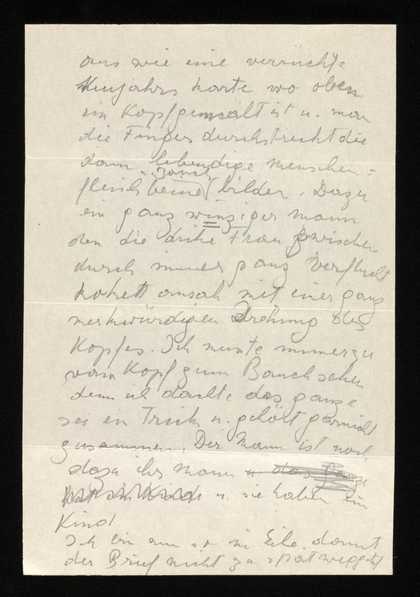 aus wie eine verrückte
Neujahrskarte wo oben
ein Kopf gemalt ist u. man
die Finger durchstreckt die
dann lebendige Menschen =
fleisch beine bilder. Dazu
ein ganz winziger Mann
den die dicke Frau zwischen
durch immer ganz verflucht
kokett ansah mit einer ganz
merkwürdigen Drehung des
Kopfes. Ich musste immerzu
vom Kopf zum Bauch sehen
denn ich dachte das ganze
sei ein Trick u. gehört garnicht
zusammen. Der Mann ist noch
dazu ihr Mann
u. sie haben ein
Kind
Ich bin so in Eile damit
der Brief nicht zu spät weggeht